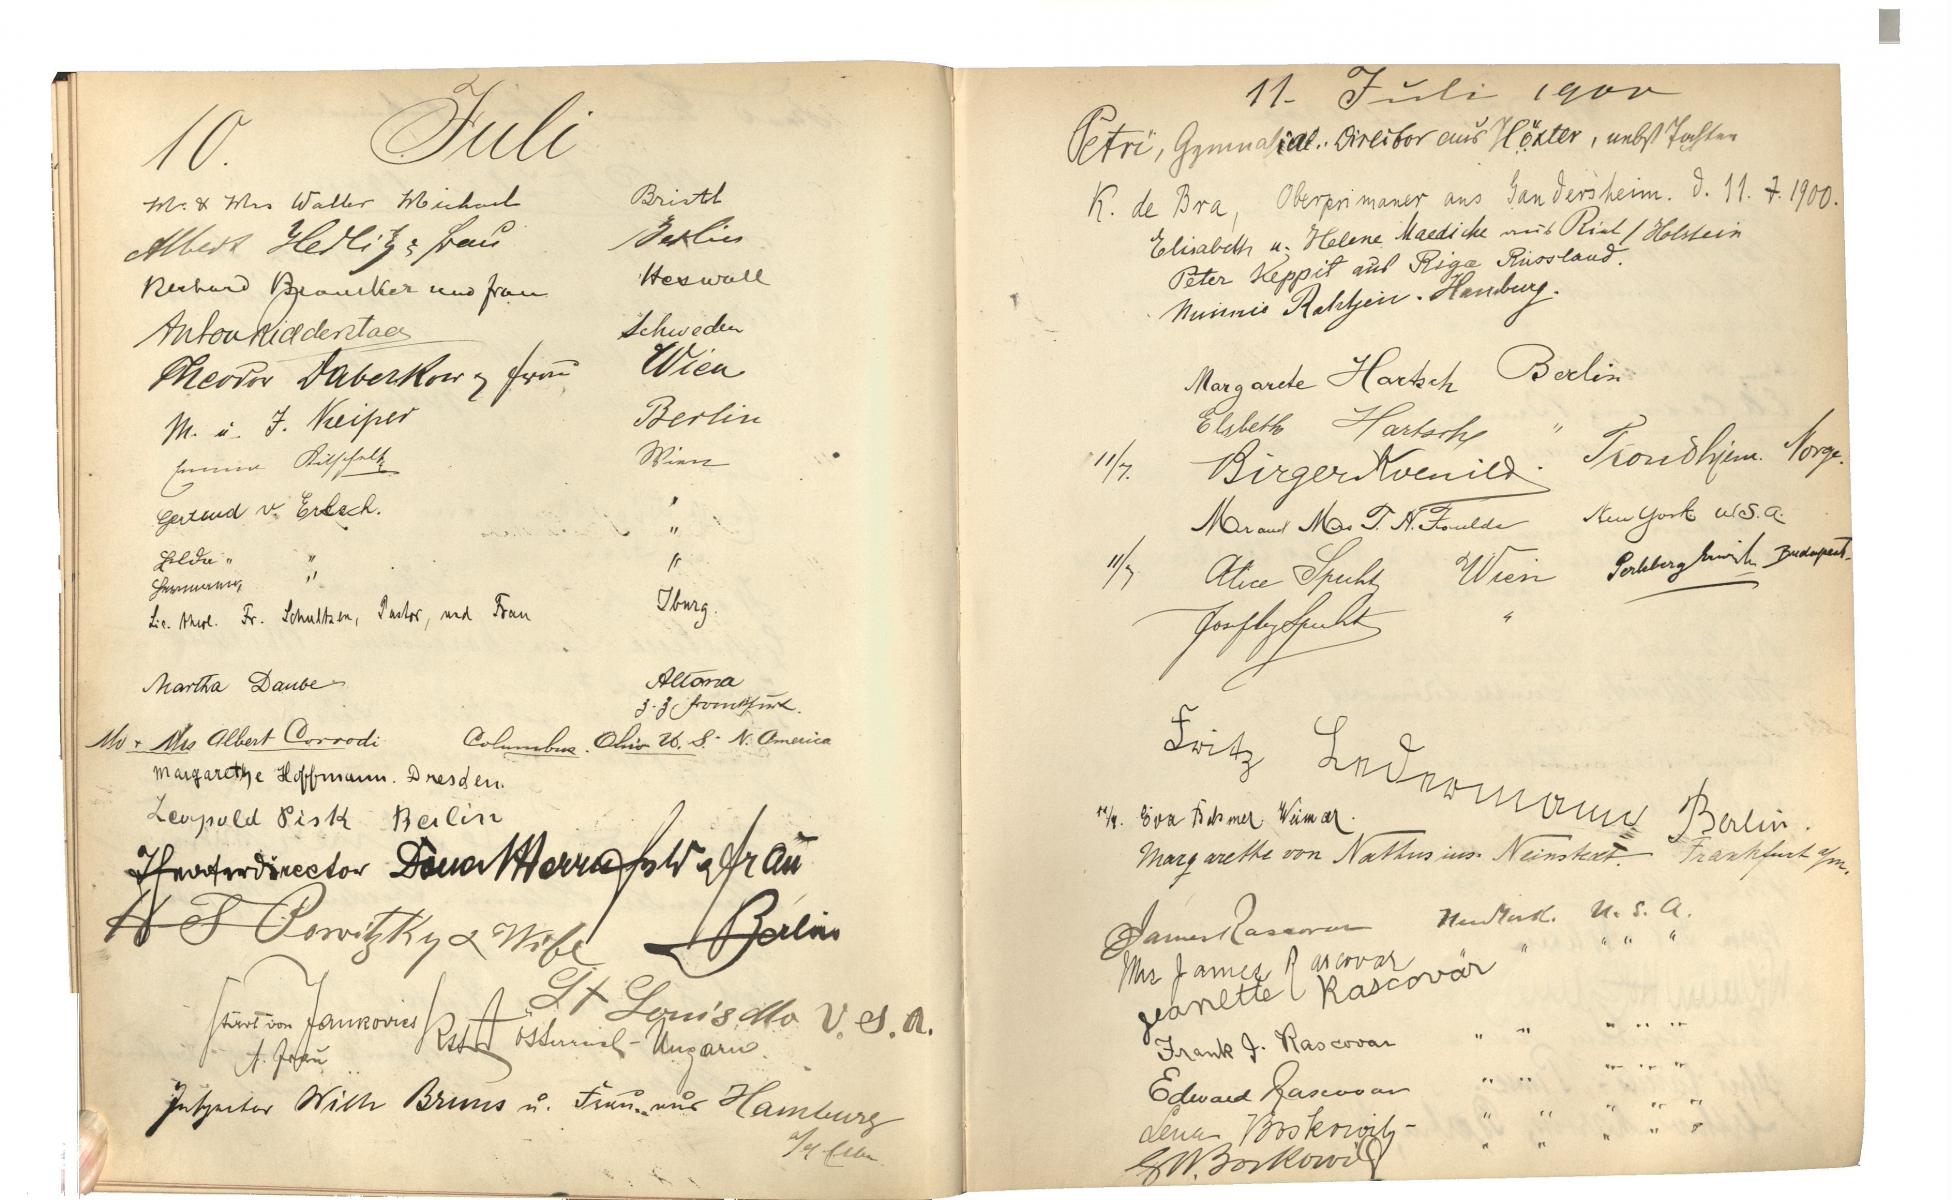 10. Juli
Mr. & Mrs Walter Michael Bristol
Albert Hedlitz & Frau Berlin
und Frau Heswall
Anton Schweden
Theodor Daberkow & Frau Wien
M. u. J. Keiper Berlin
Emma Wien
Gertrud v. "
" "
Hermann "
Lic. theol. Fr. Schultzen, Pastor, und Frau Iburg.
Martha Daube Altona
z. Z. Frankfurt.
Mr + Mrs Albert Corrodi Columbus. Ohio U. S. N. America
Margarethe Hoffmann. Dresden.
Leopold Pisk Berlin
Theaterdirector & Frau
Berlin
Powitzky & Wife
St Louis Mo U. S. A.
von Jankovics Österreich-Ungarn.
Frau
Inspector Wilh Bruns u. Frau aus Hamburg
11. Juli 1900
Petri, Gymnasial-Direktor aus Höxter, nebst Tochter
K. de Bra, Oberprimaner aus Gandersheim. d. 11. 7. 1900.
Elisabeth u. Helene Maedicke aus Kiel / Holstein
Peter Keppit aus Riga Russland.
Rahtjen. Hamburg.
Margarete Hartsch Berlin
Elsbeth Hartsch "
11/7. Birger Kvenild. Trondhjem. Norge.
Mr and Mrs T. H. Foulds New York U.S.A.
11/7 Alice Specht Wien Budapest.
Specht "
Fritz Ledermann Berlin.
11/7. Eva Weimar.
Margarethe von Nathusius. Neinstedt. Frankfurt a/m.
James Rascovar New York. U. S. A.
Mrs James Rascovar " " " "
Jeanette Rascovar
Frank J. Rascovar " " " " "
Edward Rascovar " " " " "
Lena Boskowitz " " " " "
G W. Boskowitz " " " " "